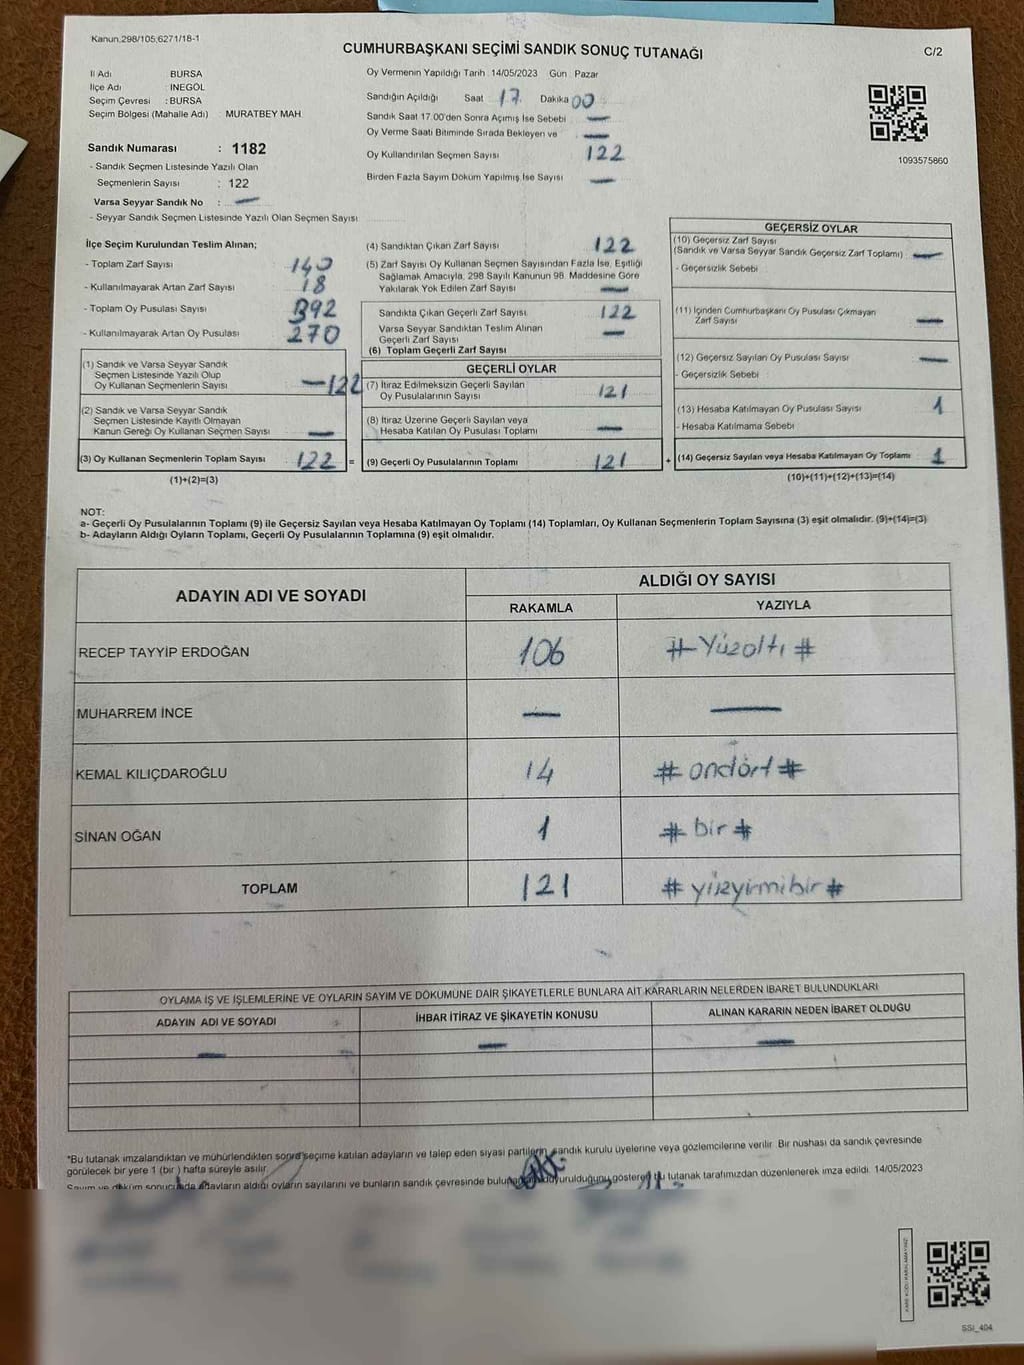 Kanun,298/105,6271/18-1
CUMHURBAŞKANI SEÇİMİ SANDIK SONUÇ TUTANAĞI
C/2
İl Adı BURSA
İlçe Adı : İNEGÖL
Seçim Çevresi : BURSA
Seçim Bölgesi (Mahalle Adı) MURATBEY MAH.
Sandık Numarası : 1182
- Sandık Seçmen Listesinde Yazılı Olan
Seçmenlerin Sayısı : 122
Varsa Seyyar Sandık No : —
- Seyyar Sandık Seçmen Listesinde Yazılı Olan Seçmen Sayısı
Oy Vermenin Yapıldığı Tarih 14/05/2023 Gün : Pazar
Sandığın Açıldığı Saat 17 Dakika 00
Sandık Saat 17.00'den Sonra Açımış İse Sebebi —
Oy Verme Saati Bitiminde Sırada Bekleyen ve —
Oy Kullandırılan Seçmen Sayısı 122
Birden Fazla Sayım Döküm Yapılmış İse Sayısı —
1093575860
İlçe Seçim Kurulundan Teslim Alınan;
- Toplam Zarf Sayısı 140
- Kullanılmayarak Artan Zarf Sayısı 18
- Toplam Oy Pusulası Sayısı 392
- Kullanılmayarak Artan Oy Pusulası 270
(1) Sandık ve Varsa Seyyar Sandık
Seçmen Listesinde Yazılı Olup
Oy Kullanan Seçmenlerin Sayısı —122
(2) Sandık ve Varsa Seyyar Sandık
Seçmen Listesinde Kayıtlı Olmayan
Kanun Gereği Oy Kullanan Seçmen Sayısı —
(3) Oy Kullanan Seçmenlerin Toplam Sayısı 122 =
(1)+(2)=(3)
(4) Sandıktan Çıkan Zarf Sayısı 122
(5) Zarf Sayısı Oy Kullanan Seçmen Sayısından Fazla İse, Eşitliği
Sağlamak Amacıyla, 298 Sayılı Kanunun 98. Maddesine Göre
Yakılarak Yok Edilen Zarf Sayısı —
Sandıkta Çıkan Geçerli Zarf Sayısı 122
Varsa Seyyar Sandıktan Teslim Alınan
Geçerli Zarf Sayısı —
(6) Toplam Geçerli Zarf Sayısı
GEÇERLİ OYLAR
(7) İtiraz Edilmeksizin Geçerli Sayılan
Oy Pusulalarının Sayısı 121
(8) İtiraz Üzerine Geçerli Sayılan veya
Hesaba Katılan Oy Pusulası Toplamı —
(9) Geçerli Oy Pusulalarının Toplamı 121 +
GEÇERSİZ OYLAR
(10) Geçersiz Zarf Sayısı
(Sandık ve Varsa Seyyar Sandık Geçersiz Zarf Toplamı) : —
- Geçersizlik Sebebi
(11) İçinden Cumhurbaşkanı Oy Pusulası Çıkmayan
Zarf Sayısı —
(12) Geçersiz Sayılan Oy Pusulası Sayısı —
- Geçersizlik Sebebi :
(13) Hesaba Katılmayan Oy Pusulası Sayısı 1
- Hesaba Katılmama Sebebi
(14) Geçersiz Sayılan veya Hesaba Katılmayan Oy Toplamı 1
(10)+(11)+(12)+(13)=(14)
NOT:
a- Geçerli Oy Pusulalarının Toplamı (9) ile Geçersiz Sayılan veya Hesaba Katılmayan Oy Toplamı (14) Toplamları, Oy Kullanan Seçmenlerin Toplam Sayısına (3) eşit olmalıdır. (9)+(14)=(3)
b- Adayların Aldığı Oyların Toplamı, Geçerli Oy Pusulalarının Toplamına (9) eşit olmalıdır.
ADAYIN ADI VE SOYADI
ALDIĞI OY SAYISI
RAKAMLA YAZIYLA
RECEP TAYYİP ERDOĞAN 106 # Yüzaltı #
MUHARREM İNCE — —
KEMAL KILIÇDAROĞLU 14 # ondört #
SİNAN OĞAN 1 # bir #
TOPLAM 121 # yüzyirmibir #
OYLAMA İŞ VE İŞLEMLERİNE VE OYLARIN SAYIM VE DÖKÜMÜNE DAİR ŞİKAYETLERLE BUNLARA AİT KARARLARIN NELERDEN İBARET BULUNDUKLARI
ADAYIN ADI VE SOYADI İHBAR İTİRAZ VE ŞİKAYETİN KONUSU ALINAN KARARIN NEDEN İBARET OLDUĞU
— — —
*Bu tutanak imzalandıktan ve mühürlendikten sonra seçime katılan adayların ve talep eden siyasi partilerin sandık kurulu üyelerine veya gözlemcilerine verilir. Bir nüshası da sandık çevresinde
görülecek bir yere 1 (bir ) hafta süreyle asılır.
Sayım ve döküm sonucunda adayların aldığı oyların sayılarını ve bunların sandık çevresinde duyurulduğunu gösteren bu tutanak tarafımızdan düzenlenerek imza edildi. 14/05/2023
SSİ_404